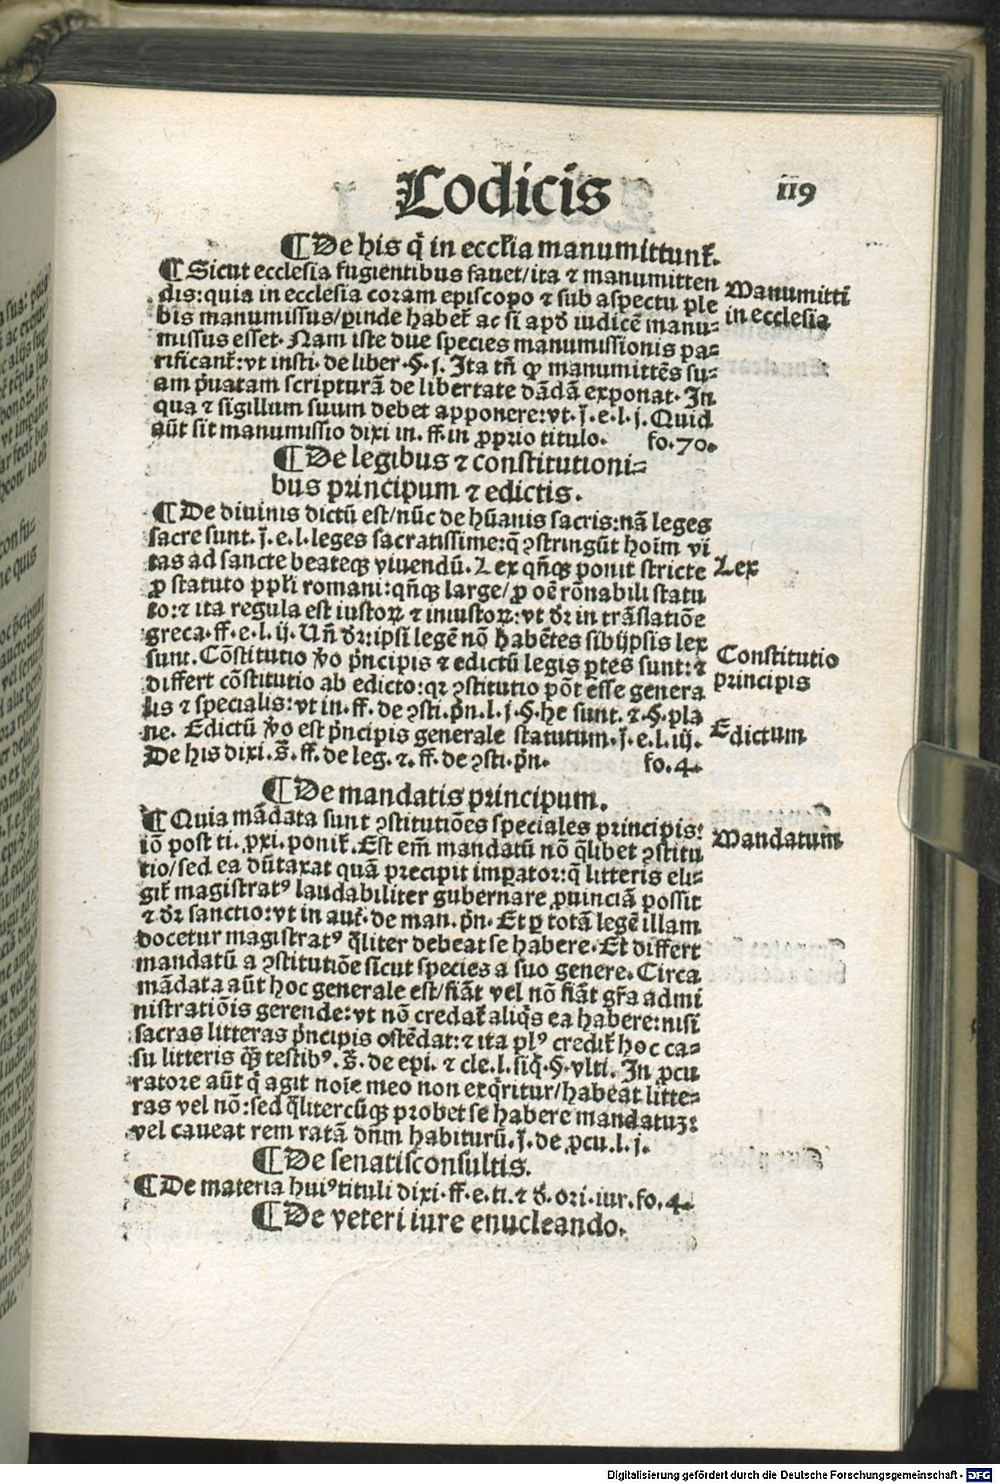 Codicis
119
¶ De his q̃ in eccłia manumittunť.
¶ Sicut ecclesia fugientibus fauet/ita ⁊ manumitten
dis:quia in ecclesia coram episcopo ⁊ sub aspectu ple
bis manumissus/ꝓinde habeť ac si apd̕ iudicē manu⸗
missus esset. Nam iste due species manumissionis pa⸗
rificanť:vt insti. de liber. §. j. Ita tñ ꝙ manumittēs su⸗
am p̃uatam scripturã de libertate dãdã exponat. In
qua ⁊ sigillum suum debet apponere:vt. j̃. e. l. j. Quid
aũt sit manumissio dixi in. ff. in ꝓprio titulo. fo. 70.
Manumitti
in ecclesia
¶ De legibus ⁊ constitutioni⸗
bus principum ⁊ edictis.
¶ De diuinis dictũ est/nũc de hũanis sacris:nã leges
sacre sunt. j̃. e. l. leges sacratissime:q̃ ꝯstringũt hoim vi
tas ad sancte beateqꝫ viuendũ. Lex qñqꝫ ponit stricte
ꝓ statuto ppłi romani:qñqꝫ large/ ꝓ oẽ rõnabili statu
to:⁊ ita regula est iustoꝝ ⁊ iniustoꝝ:vt dr̃ in trãslatiõe
greca. ff. e. l. ij. Uñ dr̃:ipsi legẽ nõ habẽtes sibijpsis lex
sunt. Cõstitutio ṽo p̃ncipis ⁊ edictũ legis ꝑtes sunt:⁊
differt cõstitutio ab edicto:qꝛ ꝯstitutio põt esse genera
lis ⁊ specialis:vt in. ff. de ꝯsti. p̃n. l. j. §. he sunt. ⁊. §. pla
ne. Edictũ ṽo est p̃ncipis generale statutum. j̃. e. l. iij.
De his dixi. s̃. ff. de leg. ⁊. ff. de ꝯsti. p̃n. fo. 4.
Lex
Constitutio
principis
Edictum
¶ De mandatis principum.
¶ Quia mãdata sunt ꝯstitutiões speciales principis:
iõ post ti. ꝓxi. poniť. Est em̃ mandatũ nõ q̃libet ꝯstitu
tio/sed ea dũtaxat quã precipit impator:q̃ litteris eli⸗
giť magistratꝰ laudabiliter gubernare ꝓuinciã possit
⁊ dr̃ sanctio:vt in auť. de man. p̃n. Et ꝑ totã legẽ illam
docetur magistratꝰ q̃liter debeat se habere. Et differt
mandatũ a ꝯstitutiõe sicut species a suo genere. Circa
mãdata aũt hoc generale est/fiãt vel nõ fiãt gr̃a admi
nistratiõis gerende:vt nõ credať aliq̃s ea habere:nisi
sacras litteras p̃ncipis ostẽdat:⁊ ita plꝰ crediť hoc ca⸗
su litteris q̃ꝫ testibꝰ. s̃. de epi. ⁊ cle. l. siq̃. §. vlti. In ꝓcu
ratore aũt q̃ agit noie meo non exq̃ritur/habeat litte⸗
ras vel nõ:sed q̃litercũqꝫ probet se habere mandatuꝫ:
vel caueat rem ratã dñm habiturũ. j̃. de ꝓcu. l. j.
Mandatum
¶ De senatisconsultis.
¶ De materia huiꝰ tituli dixi. ff. e. ti. ⁊ d̃. ori. iur. fo. 4.
¶ De veteri iure enucleando.
Digitalisierung gefördert durch die Deutsche Forschungsgemeinschaft - DFG